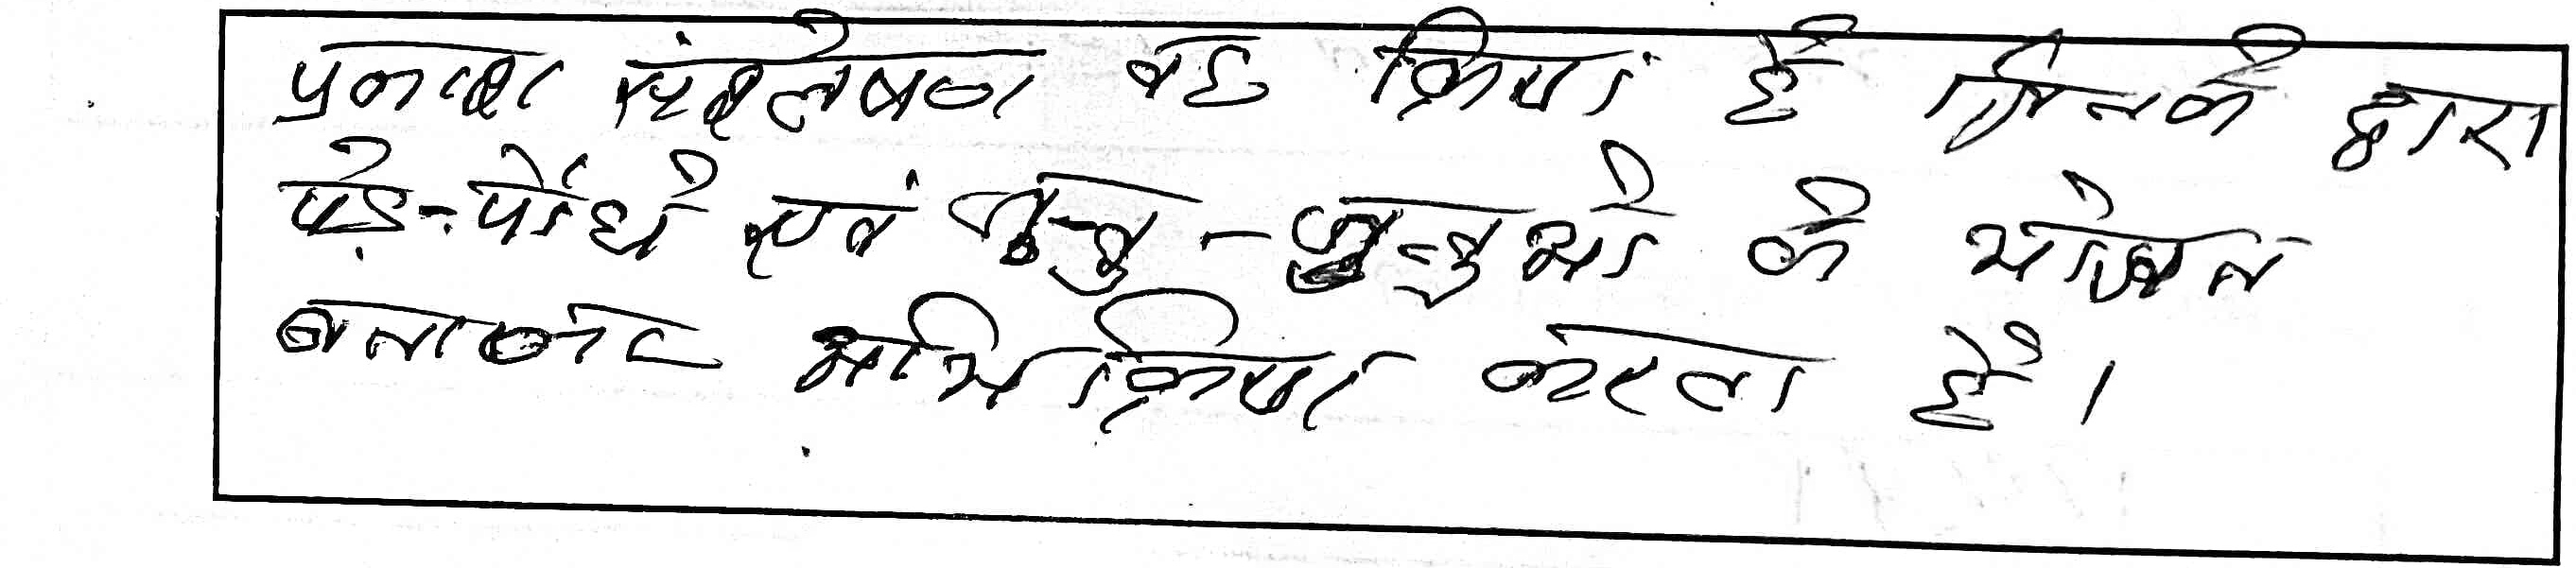 प्रकाश संश्लेषण वह क्रिया है जिनके द्वारा
पेड़-पौधे एवं जन्तु-जन्तुओ के भोजन
बनाकर अभिक्रिया करता है।